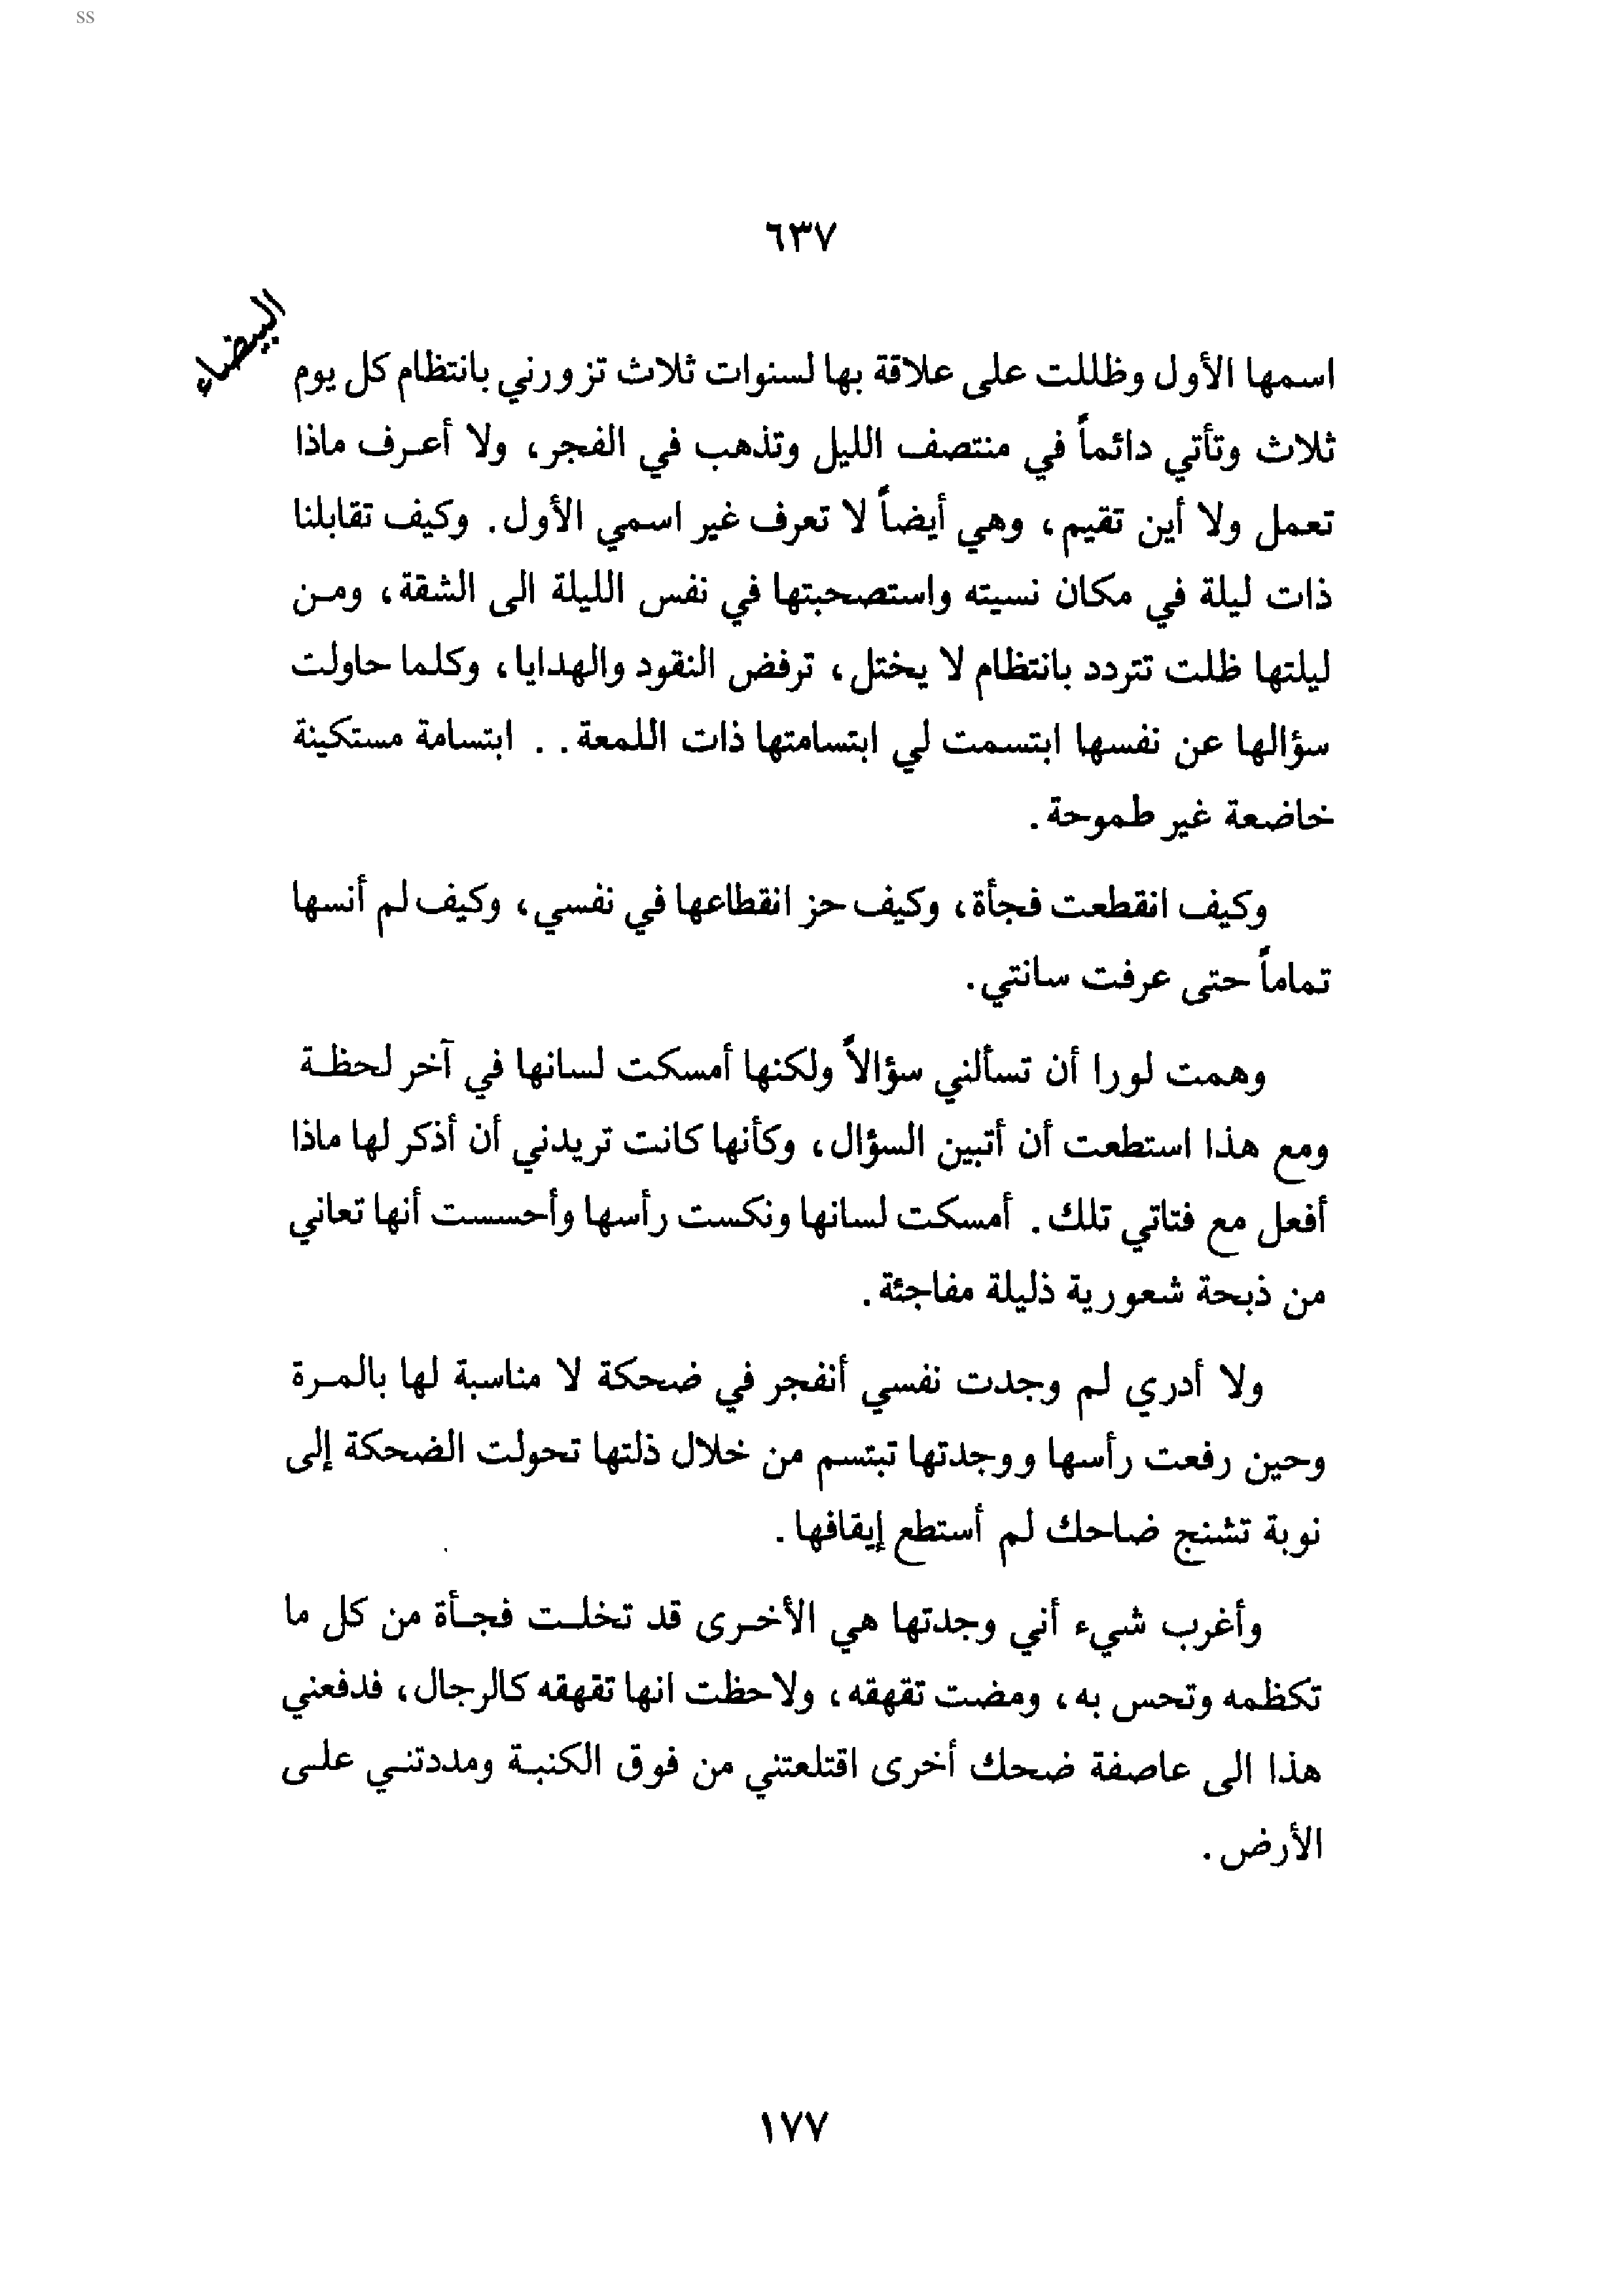 ss
٦٣٧
البيضاء
اسمها الأول وظللت على علاقة بها لسنوات ثلاث تزورني بانتظام كل يوم
ثلاث وتأتي دائماً في منتصف الليل وتذهب في الفجر، ولا أعرف ماذا
تعمل ولا أين تقيم، وهي أيضاً لا تعرف غير اسمي الأول. وكيف تقابلنا
ذات ليلة في مكان نسيته واستصحبتها في نفس الليلة الى الشقة، ومن
ليلتها ظلت تتردد بانتظام لا يختل، ترفض النقود والهدايا، وكلما حاولت
سؤالها عن نفسها ابتسمت لي ابتسامتها ذات اللمعة.. ابتسامة مستكينة
خاضعة غير طموحة.
وكيف انقطعت فجأة، وكيف حز انقطاعها في نفسي، وكيف لم أنسها
تماماً حتى عرفت سانتي.
وهمت لورا أن تسألني سؤالاً ولكنها أمسكت لسانها في آخر لحظة
ومع هذا استطعت أن أتبين السؤال، وكأنها كانت تريدني أن أذكر لها ماذا
أفعل مع فتاتي تلك. أمسكت لسانها ونكست رأسها وأحسست أنها تعاني
من ذبحة شعورية ذليلة مفاجئة.
ولا أدري لم وجدت نفسي أنفجر في ضحكة لا مناسبة لها بالمرة
وحين رفعت رأسها ووجدتها تبتسم من خلال ذلتها تحولت الضحكة إلى
نوبة تشنج ضاحك لم أستطع إيقافها.
وأغرب شيء أني وجدتها هي الأخرى قد تخلت فجأة من كل ما
تكظمه وتحس به، ومضت تقهقه، ولاحظت انها تقهقه كالرجال، فدفعني
هذا الى عاصفة ضحك أخرى اقتلعتني من فوق الكنبة ومددتني على
الأرض.
١٧٧